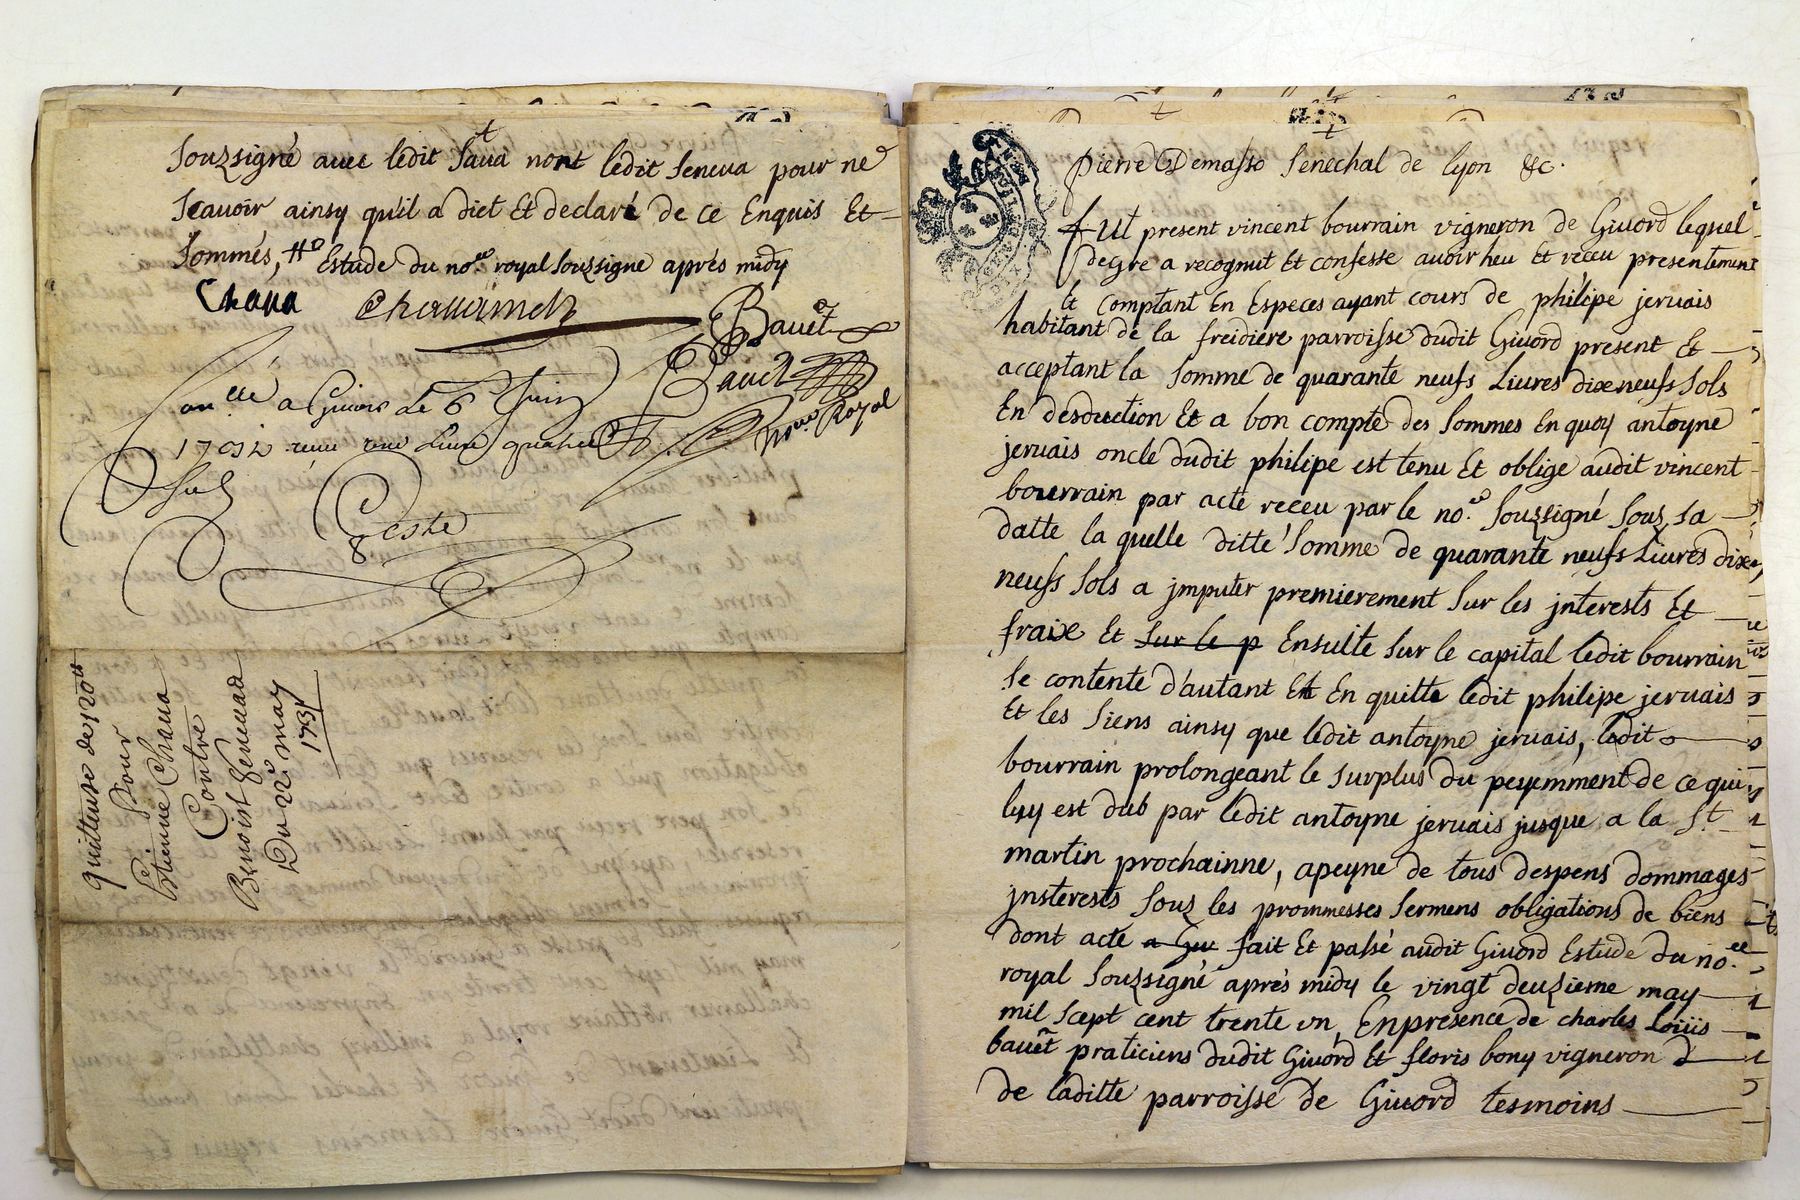 Souzsigné avec ledit Sava nont ledit Seneva pour ne
Scavoir ainsy qu'il a diet Et declaré de ce Enquis Et
Sommés, Estude du no.re royal Souzsigne aprés midy
Chava Challamel Bauet
Bauet
no.re Royal
a Givors le 6e Juin
1731 receu une Livre quatre
Sols
Geste
quittense de 120ll
Pour
Etienne Chava
Contre
Benoist Senevad
Du 22e may
1731
Pierre Demasso Senechal de lyon &c.
Fut present vincent bourrain vigneron de Givord lequel
Degre a recognut Et confesse avoir heu Et receu presentement
Et comptant En Especes ayant cours de philipe jervais
habitant de la freidiere parroisse dudit Givord present Et
acceptant la Somme de quarante neufs Livres dixneufs Sols
En desduction Et a bon compte des Sommes En quoy antoyne
jervais oncle dudit philipe est tenu Et oblige audit vincent
bourrain par acte receu par le no.re Souzsigné Souz sa
datte la quelle ditte Somme de quarante neufs Livres dix
neufs Sols a jmputer premierement Sur les jnterests Et
fraix Et sur le p Ensuitte Sur le capital ledit bourrain
Se contente d'autant Et En quitte ledit philipe jervais
Et les Siens ainsy que ledit antoyne jervais, ledit
bourrain prolongeant le surplus du peyemment de ce qui
luy est dub par ledit antoyne jervais jusque a la St
martin prochainne, apeyne de tous despens dommages
jnsterests Souz les prommesses Sermens obligations de biens
dont acte a Giv fait Et passé audit Givord Estude du no.re
royal Souzsigné aprés midy le vingt deuzieme may
mil Scept cent trente vn, Enpresence de charles Loüis
bauet praticiens dudit Givord Et floris bony vigneron D
de laditte parroisse de Givord tesmoins